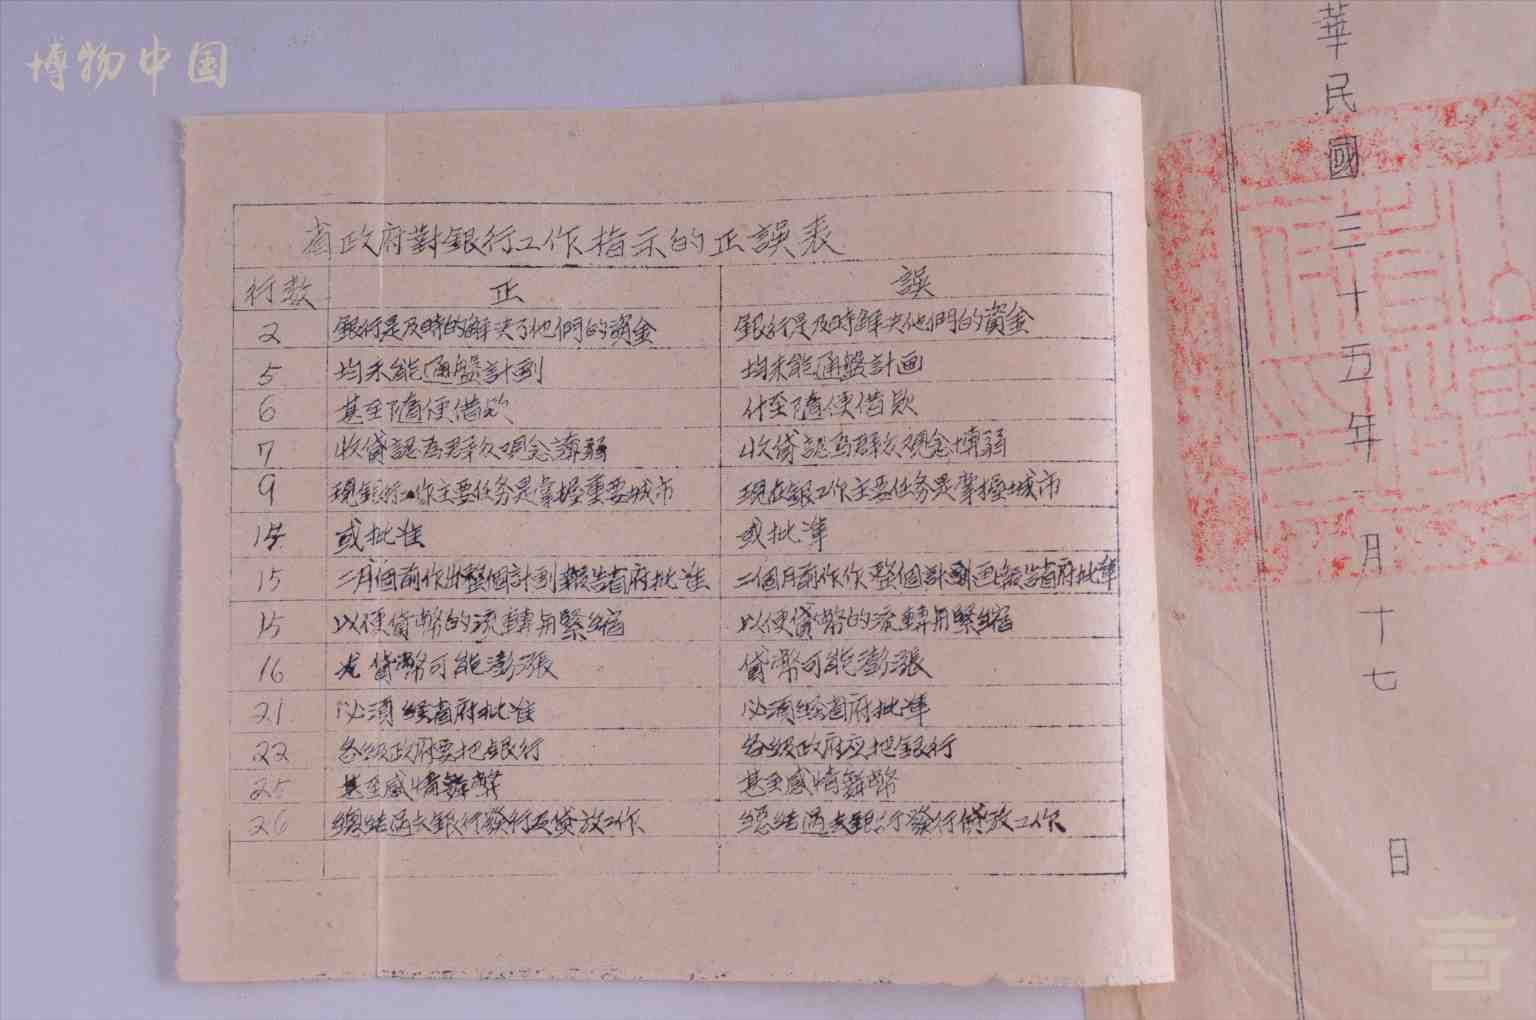 博物中国
省政府對銀行工作指示的正誤表
行数 正 誤
2 銀行是及時的解决了他們的資金 銀行是及時解决他們的資金
5 均未能通盤計劃 均未能通盤計画
6 甚至隨便借欵 什至隨便借欵
7 收貸認為群众观念薄弱 收貸認為群众观念慱弱
9 現銀行工作主要任务是掌握重要城市 現在銀工作主要任务是掌握城市
14 或批准 或批準
15 二月個前作出整個計劃報告省府批准 二個月前作作整個計劃画報告省府批準
15 以便貸幣的流轉用緊縮 以便貸幣的流轉用緊縮
16 貸幣可能澎漲 貸幣可能澎漲
21 必須經省府批准 必須經省府批準
22 各級政府要把銀行 各級政府应把銀行
25 甚至感情舞弊 甚至感情舞幣
26 總結過去銀行發行及貸放工作 總结過去銀行發行貸放工作
華民國三十五年 月十七日